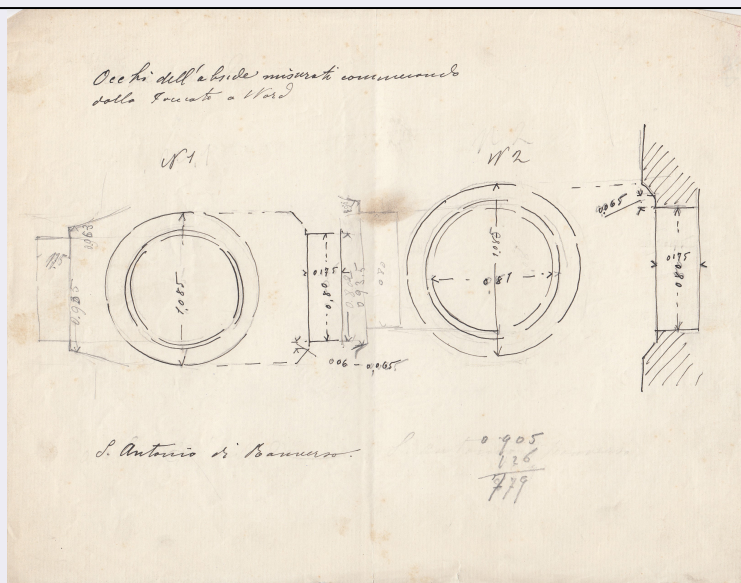 Occhi dell'abside misurati cominciando
dalla facciata a Nord
N 1
N 2
0.63
125
0.935
1,085
0175
0.81
0.93.5
0.80
006 - 0,065
1.085
0.81
0065
0175
0.80
S. Antonio di Ranverso.
0.905
126
779